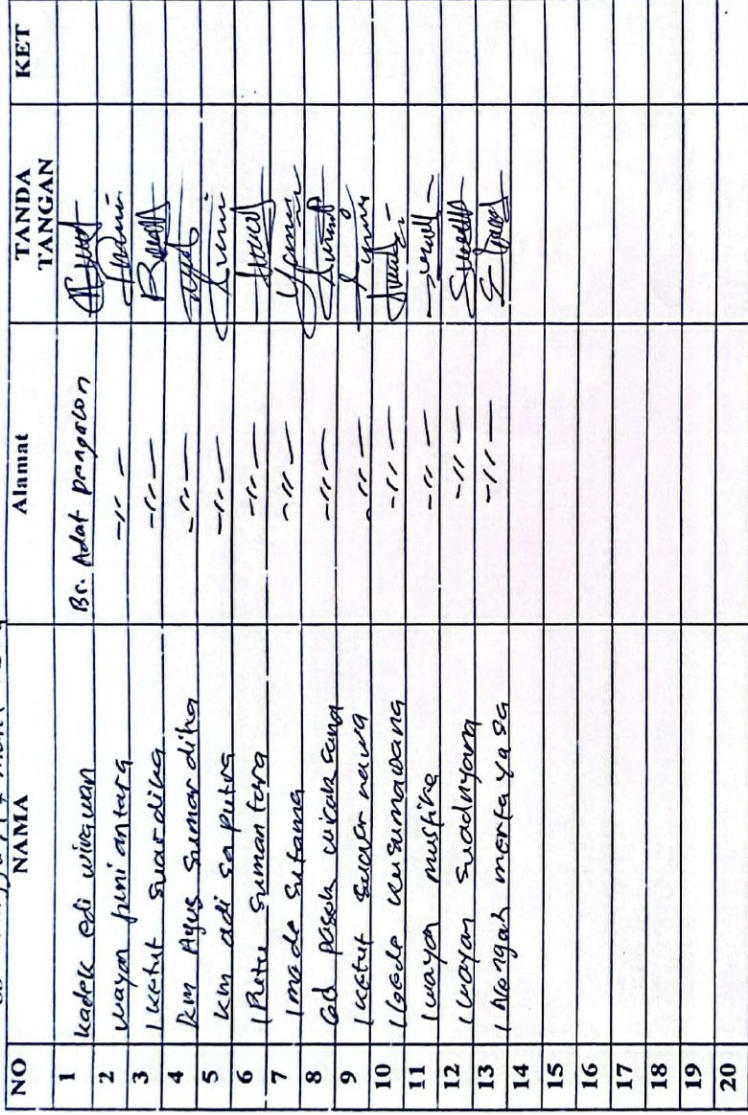 NO NAMA Alamat TANDA TANGAN KET
1 kadek edi wirawan Br. Adat
2 wayan -〃-
3 I ketut suardika -〃-
4 km Agus sumardika -〃-
5 km adi saputra -〃-
6 I Putu sumantara -〃-
7 I made sutama -〃-
8 Gd pasek wirak -〃-
9 I ketut -〃-
10 I gede kusumawang -〃-
11 I wayan mustika -〃-
12 I wayan suadnyana -〃-
13 I Nengah mertayasa -〃-
14
15
16
17
18
19
20